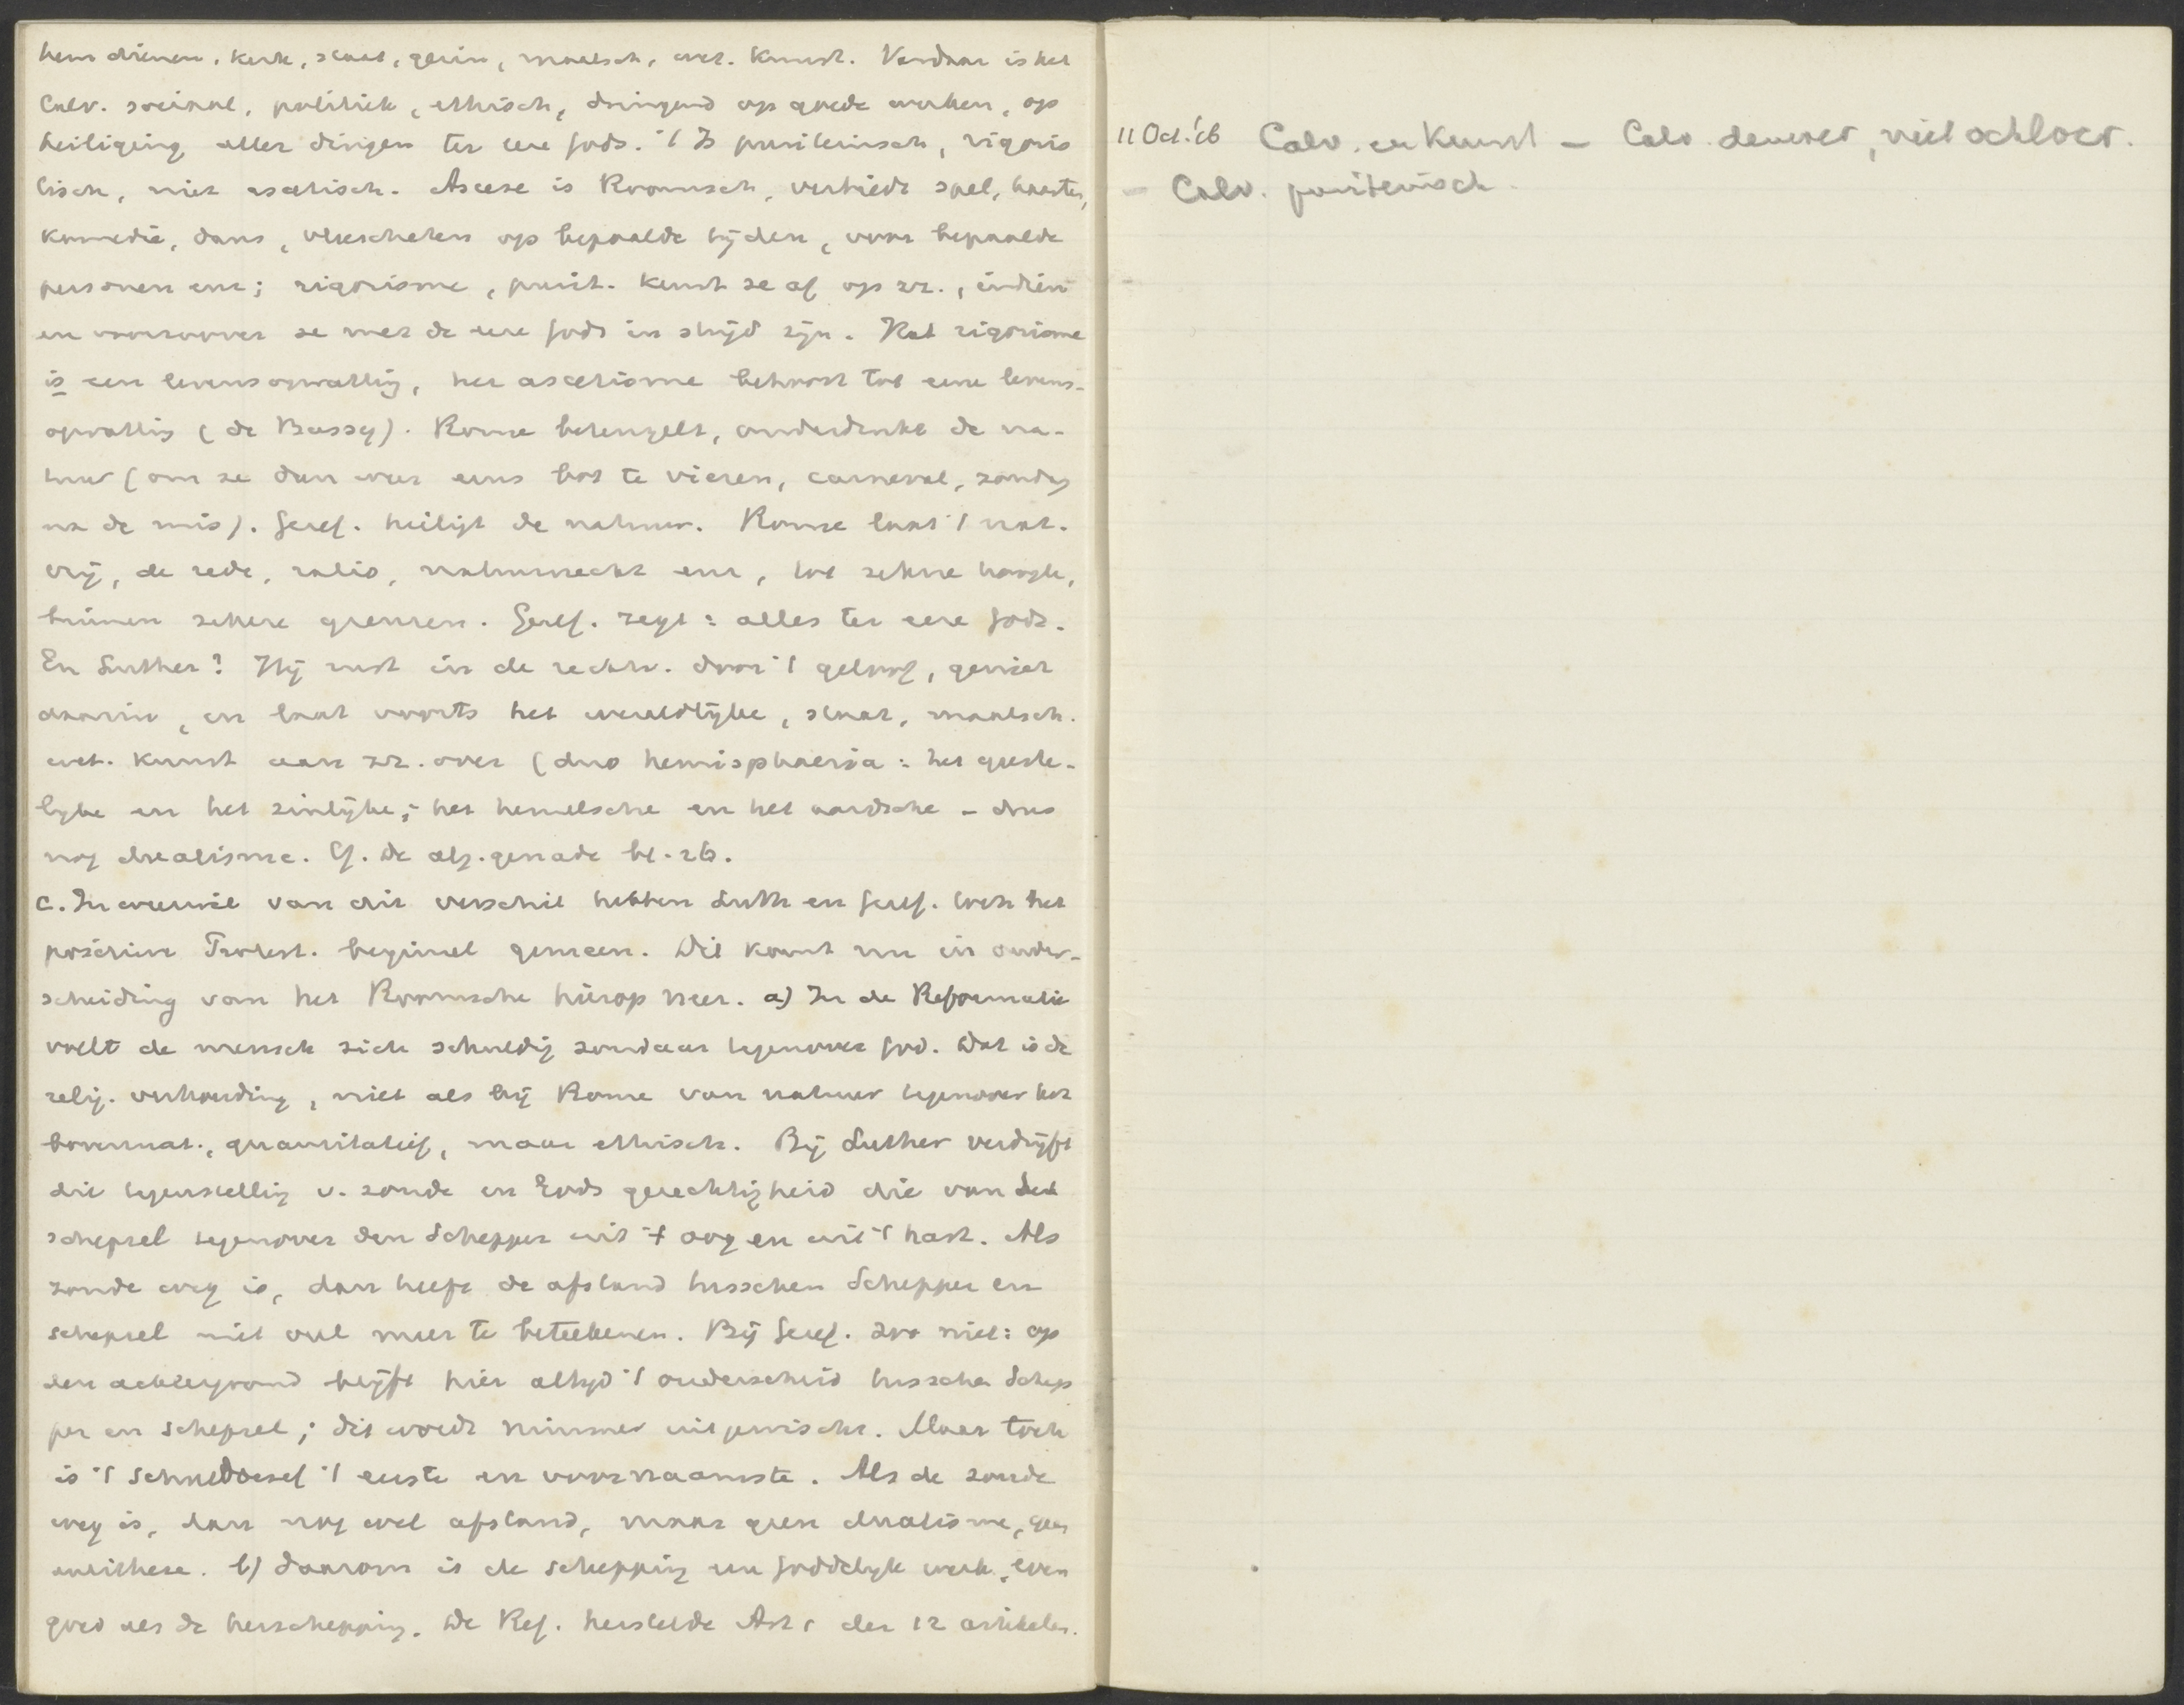 hem dienen, kerk, staat, gezin, maatsch. wet. kunst. Vandaar is het
Calv. sociaal, politiek, ethisch, dringend op goede werken, op
heiliging aller dingen ter eere Gods. 't Is puriteinsch, rigoris
tisch, niet ascetisch. Ascese is Roomsch, verbiedt spel, kaarten,
komedie, dans, vleescheten op bepaalde tijden, voor bepaalde
personen enz; rigorisme, purit. keurt ze af op zz., indien
en voorzoover ze met de eere Gods in strijd zijn. Het rigorisme
is een levensopvatting, het ascetisme behoort tot eene levens-
opvatting (de Bussy). Rome beteugelt, onderdrukt de na-
tuur (om ze dan weer eens bot te vieren, carneval, zondag
na de mis). Geref. heiligt de natuur. Rome laat 't nat.
vrij, de rede, ratio, natuurrecht enz, tot zekere hoogte,
binnen zekere grenzen. Geref. zegt: alles ter eere Gods.
En Luther? Hij rust in de rechtv. door 't geloof, geniet
daarin, en laat voorts het wereldlijke, staat, maatsch.
wet. kunst aan zz. over (duo hemisphaeria: het geeste-
lijke en het zinlijke; het hemelsche en het aardsche - dus
nog dualisme. Cf. De alg. genade bl. 26.
c. In weerwil van dit verschil hebben Luth en Geref. toch het
positieve Protest. beginsel gemeen. Dit komt nu in onder-
scheiding van het Roomsche hierop neer. a) In de Reformatie
voelt de mensch zich schuldig zondaar tegenover God. Dat is de
relig. verhouding, niet als bij Rome van natuur tegenover het
bovennat., quantitatief, maar ethisch. Bij Luther verdrijft
die tegenstelling v. zonde en Gods gerechtigheid die van het
schepsel tegenover den Schepper uit 't oog en uit 't hart. Als
zonde weg is, dan heeft de afstand tusschen Schepper en
schepsel niet veel meer te beteekenen. Bij Geref. zoo niet: op
den achtergrond blijft hier altijd 't onderscheid tusschen Schep
per en schepsel; dit wordt nimmer uitgewischt. Maar toch
is 't schuldbesef 't eerste en voornaamste. Als de zonde
weg is, dan nog wel afstand, maar geen dualisme, geen
antithese. b) daarom is de schepping een goddelijk werk, even
goed als de herschepping. De Ref. herstelde Art 1 der 12 artikelen.
11 Oct. '06 Calv. en Kunst - Calv. democr, niet ochlocr.
- Calv. puriteinsch.